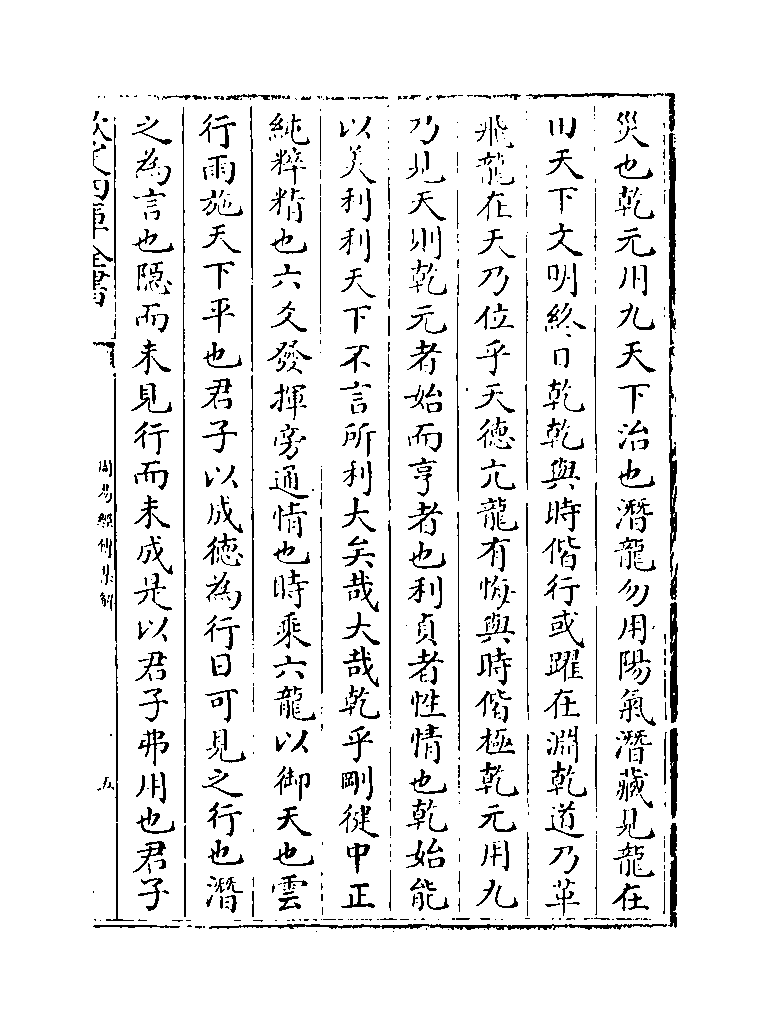 災也乾元用九天下治也潛龍勿用陽氣潛藏見龍在
田天下文明終日乾乾與時偕行或躍在淵乾道乃革
飛龍在天乃位乎天德亢龍有悔與時偕極乾元用九
乃見天則乾元者始而亨者也利貞者性情也乾始能
以美利利天下不言所利大矣哉大哉乾乎剛健中正
純粹精也六爻發揮旁通情也時乘六龍以御天也雲
行雨施天下平也君子以成德為行日可見之行也潛
之為言也隱而未見行而未成是以君子弗用也君子
欽定四庫全書
周易經傳集解
五